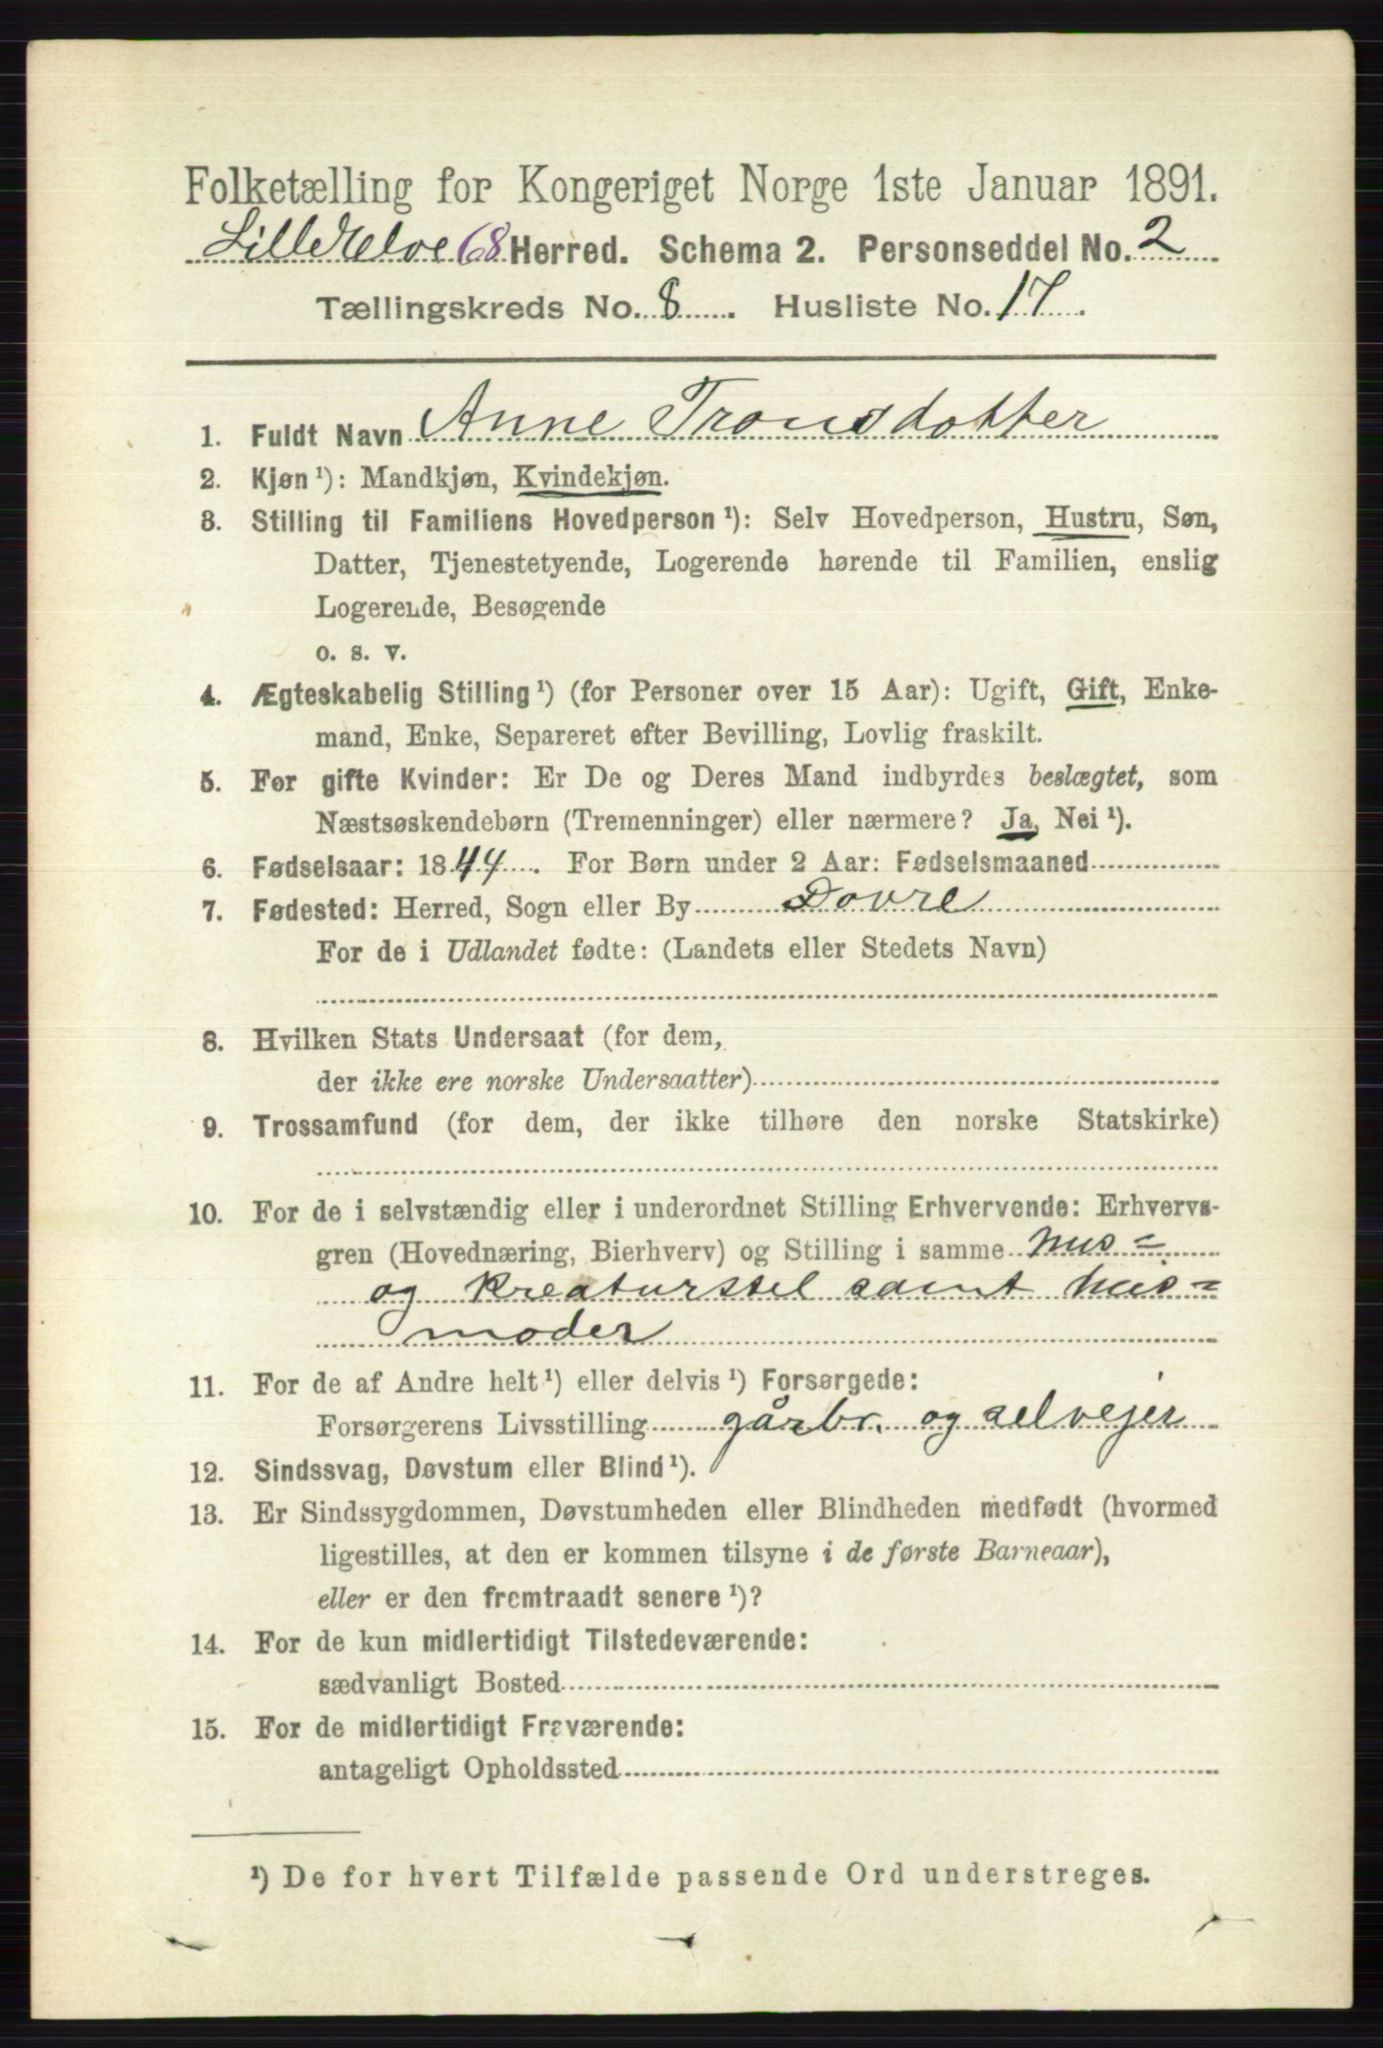 Folketælling for Kongeriget Norge 1ste Januar 1891.
Lille Elve 68 Herred. Schema 2. Personseddel No. 2
Tællingskreds No. 8. Husliste No. 17.
1. Fuldt Navn Anne Tronsdotter
2. Kjøn ¹): Mandkjøn, Kvindekjøn.
3. Stilling til Familiens Hovedperson ¹): Selv Hovedperson, Hustru, Søn,
Datter, Tjenestetyende, Logerende hørende til Familien, enslig
Logerende, Besøgende
o. s. v.
4. Ægteskabelig Stilling ¹) (for Personer over 15 Aar): Ugift, Gift, Enke-
mand, Enke, Separeret efter Bevilling, Lovlig fraskilt.
5. For gifte Kvinder: Er De og Deres Mand indbyrdes beslægtet, som
Næstsøskendebørn (Tremenninger) eller nærmere? Ja, Nei ¹).
6. Fødselsaar: 1844. For Børn under 2 Aar: Fødselsmaaned
7. Fødested: Herred, Sogn eller By Dovre
For de i Udlandet fødte: (Landets eller Stedets Navn)
8. Hvilken Stats Undersaat (for dem,
der ikke ere norske Undersaatter)
9. Trossamfund (for dem, der ikke tilhøre den norske Statskirke)
10. For de i selvstændig eller i underordnet Stilling Erhvervende: Erhvervs-
gren (Hovednæring, Bierhverv) og Stilling i samme hus=
og kreaturstel samt hus=
moder
11. For de af Andre helt ¹) eller delvis ¹) Forsørgede:
Forsørgerens Livsstilling gårbr. og selvejer
12. Sindssvag, Døvstum eller Blind ¹).
13. Er Sindssygdommen, Døvstumheden eller Blindheden medfødt (hvormed
ligestilles, at den er kommen tilsyne i de første Barneaar),
eller er den fremtraadt senere ¹)?
14. For de kun midlertidigt Tilstedeværende:
sædvanligt Bosted
15. For de midlertidigt Fraværende:
antageligt Opholdssted
¹) De for hvert Tilfælde passende Ord understreges.